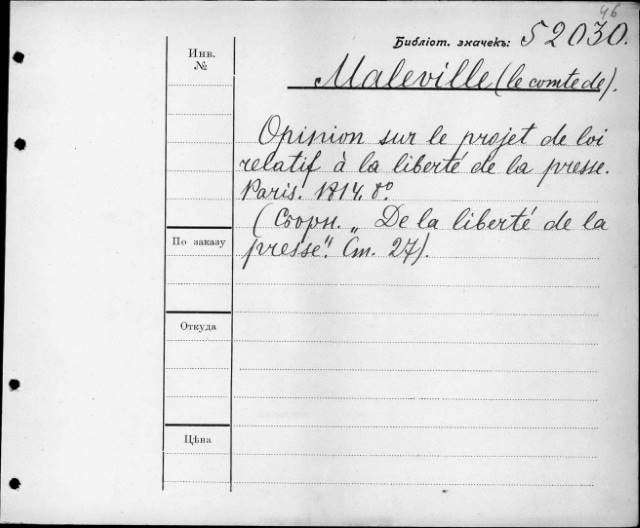 46
Библіот. значекъ: 52030.
Инв.
№
Maleville (le comte de).
Opinion sur le projet de loi
relatif à la liberté de la presse.
Paris. 1814. 8°.
(Сборн. „De la liberté de la
presse“. Ст. 27).
По заказу
Откуда
Цѣна